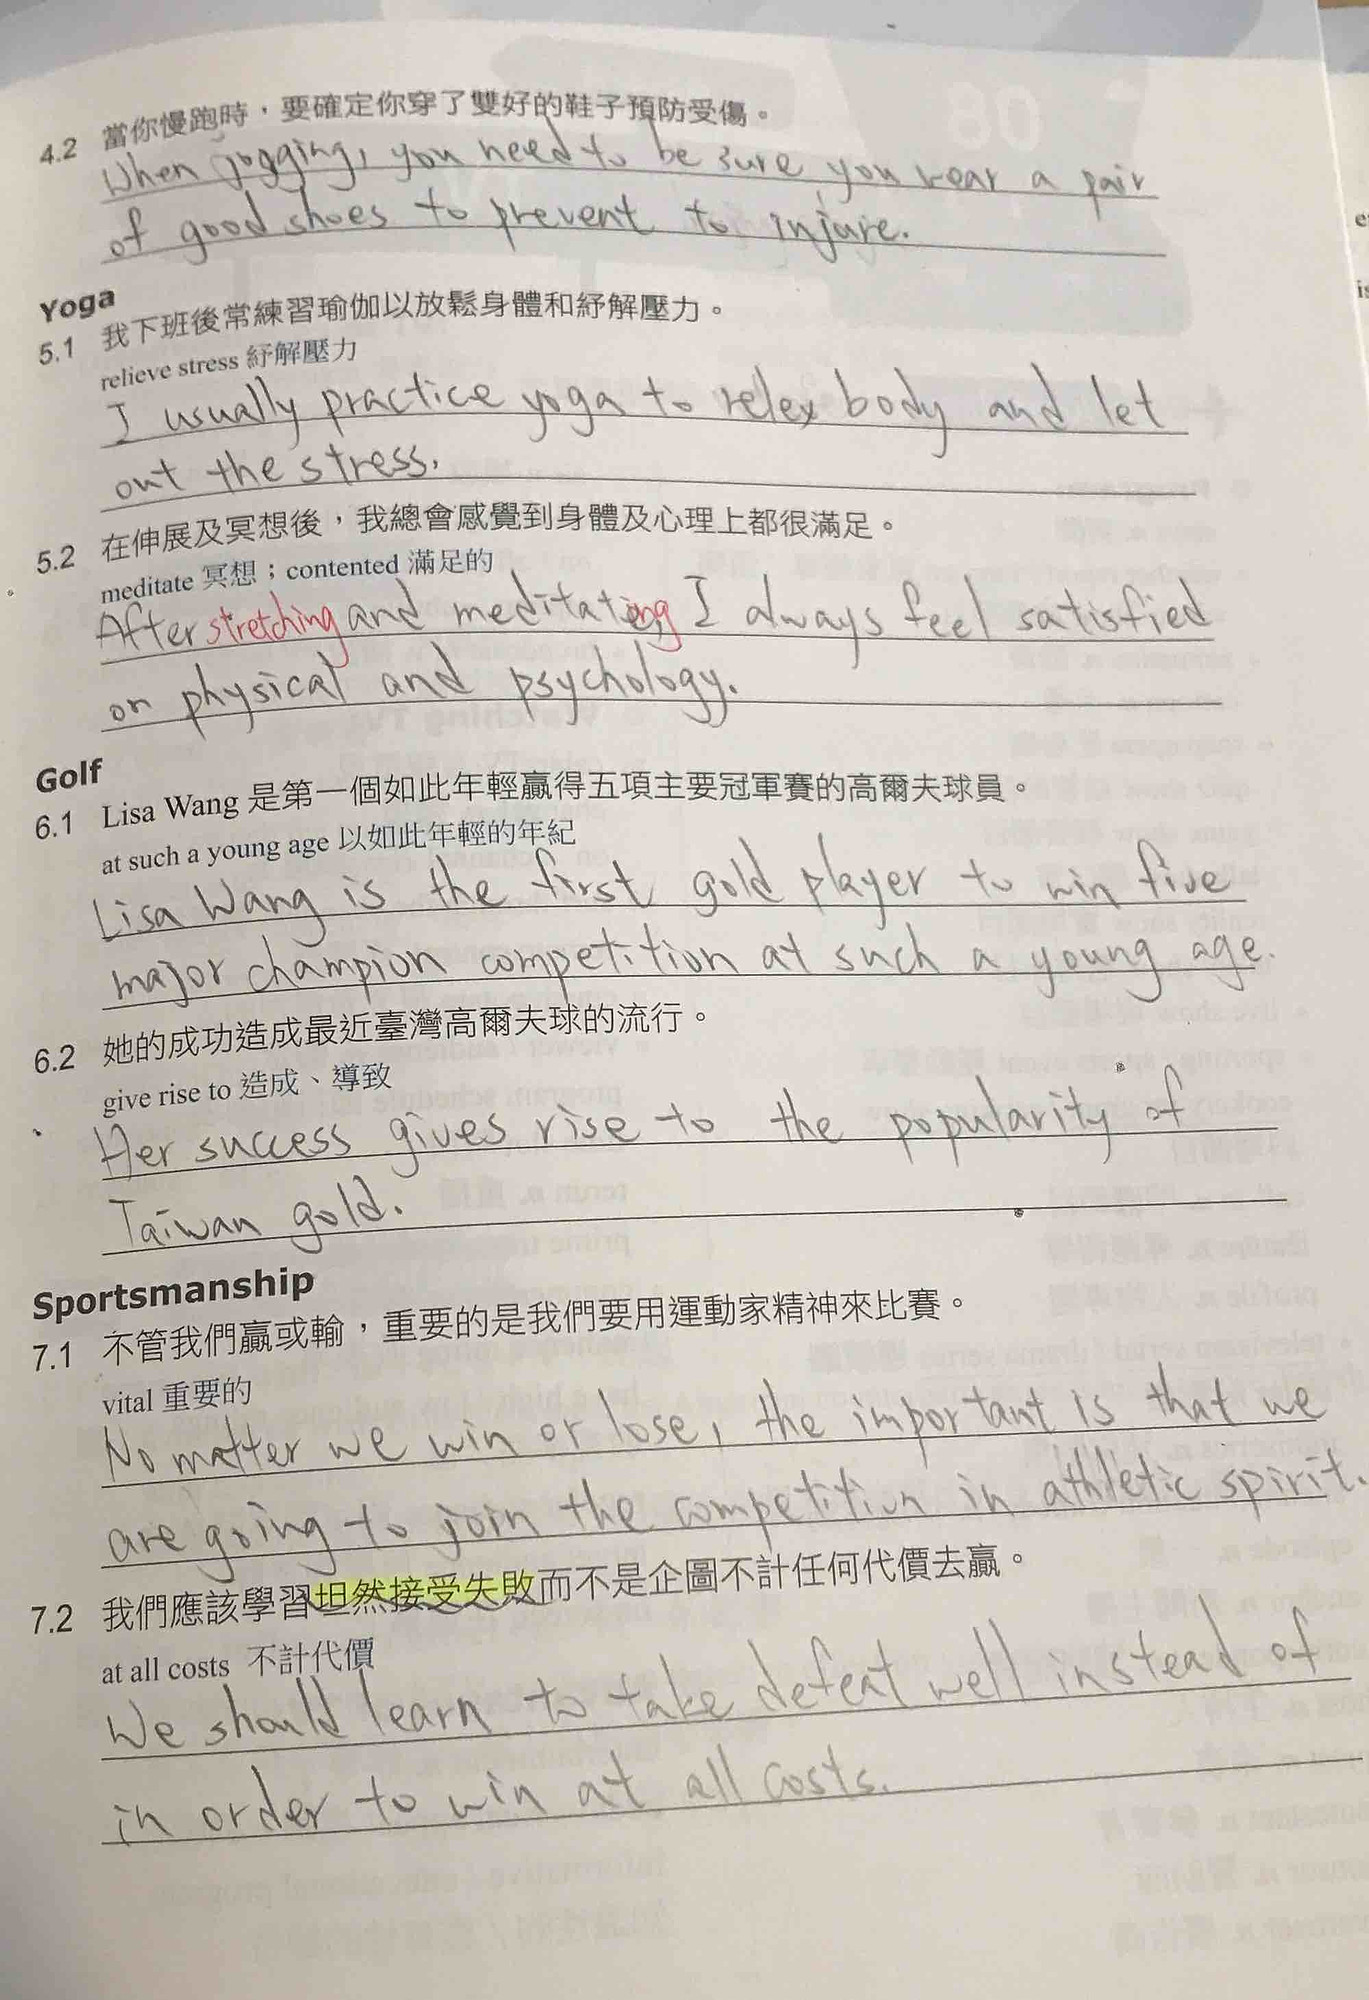 4.2 當你慢跑時，要確定你穿了雙好的鞋子預防受傷。
When jogging, you need to be sure you wear a pair
of good shoes to prevent to injure.
Yoga
5.1 我下班後常練習瑜伽以放鬆身體和紓解壓力。
relieve stress 紓解壓力
I usually practice yoga to relex body and let
out the stress.
5.2 在伸展及冥想後，我總會感覺到身體及心理上都很滿足。
meditate 冥想；contented 滿足的
After stretching and meditating, I always feel satisfied
on physical and psychology.
Golf
6.1 Lisa Wang 是第一個如此年輕贏得五項主要冠軍賽的高爾夫球員。
at such a young age 以如此年輕的年紀
Lisa Wang is the first gold player to win five
major champion competition at such a young age.
6.2 她的成功造成最近臺灣高爾夫球的流行。
give rise to 造成、導致
Her success gives rise to the popularity of
Taiwan gold.
Sportsmanship
7.1 不管我們贏或輸，重要的是我們要用運動家精神來比賽。
vital 重要的
No matter we win or lose, the important is that we
are going to join the competition in athletic spirit.
7.2 我們應該學習坦然接受失敗而不是企圖不計任何代價去贏。
at all costs 不計代價
We should learn to take defeat well instead of
in order to win at all costs.